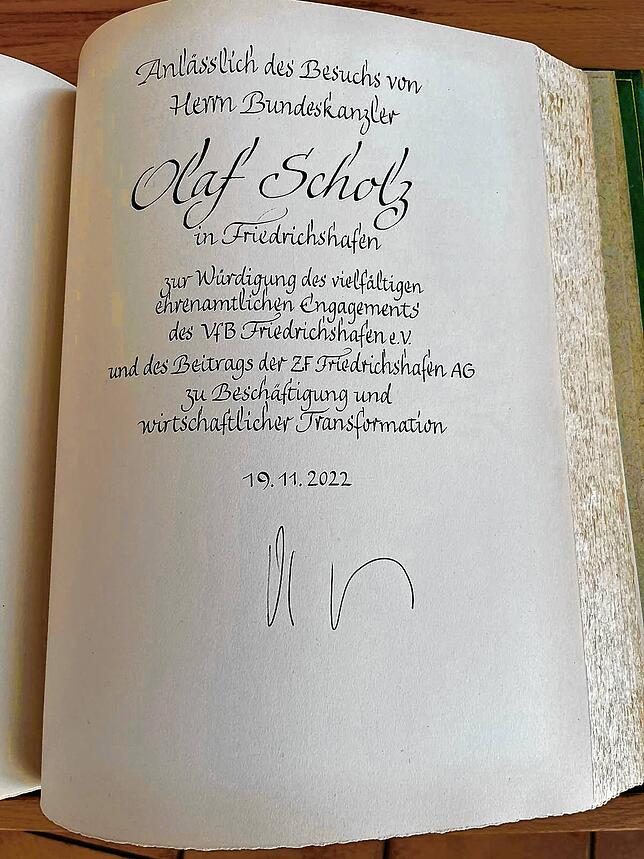 Anlässlich des Besuchs von
Herrn Bundeskanzler
Olaf Scholz
in Friedrichshafen
zur Würdigung des vielfältigen
ehrenamtlichen Engagements
des VfB Friedrichshafen e.V.
und des Beitrags der ZF Friedrichshafen AG
zu Beschäftigung und
wirtschaftlicher Transformation
19.11.2022